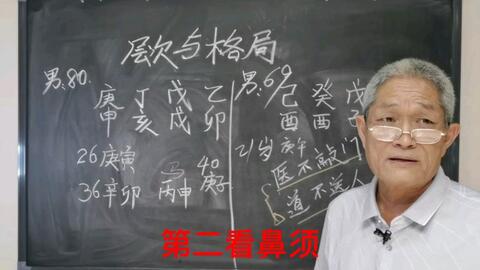 层次与格局
男:80.
庚丁戊乙
申亥戌卯
26庚寅
36辛卯
马
丙申
40
庚子
男:69
己癸戊
酉酉子
21岁庚午
医不敲门
道不送人
第二看鼻须